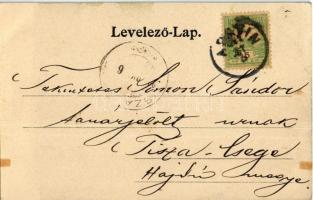 Levelező-Lap.
Tekintetes Simon Sándor
tanárjelölt urnak
Tisza-Csege
Hajdú megye.